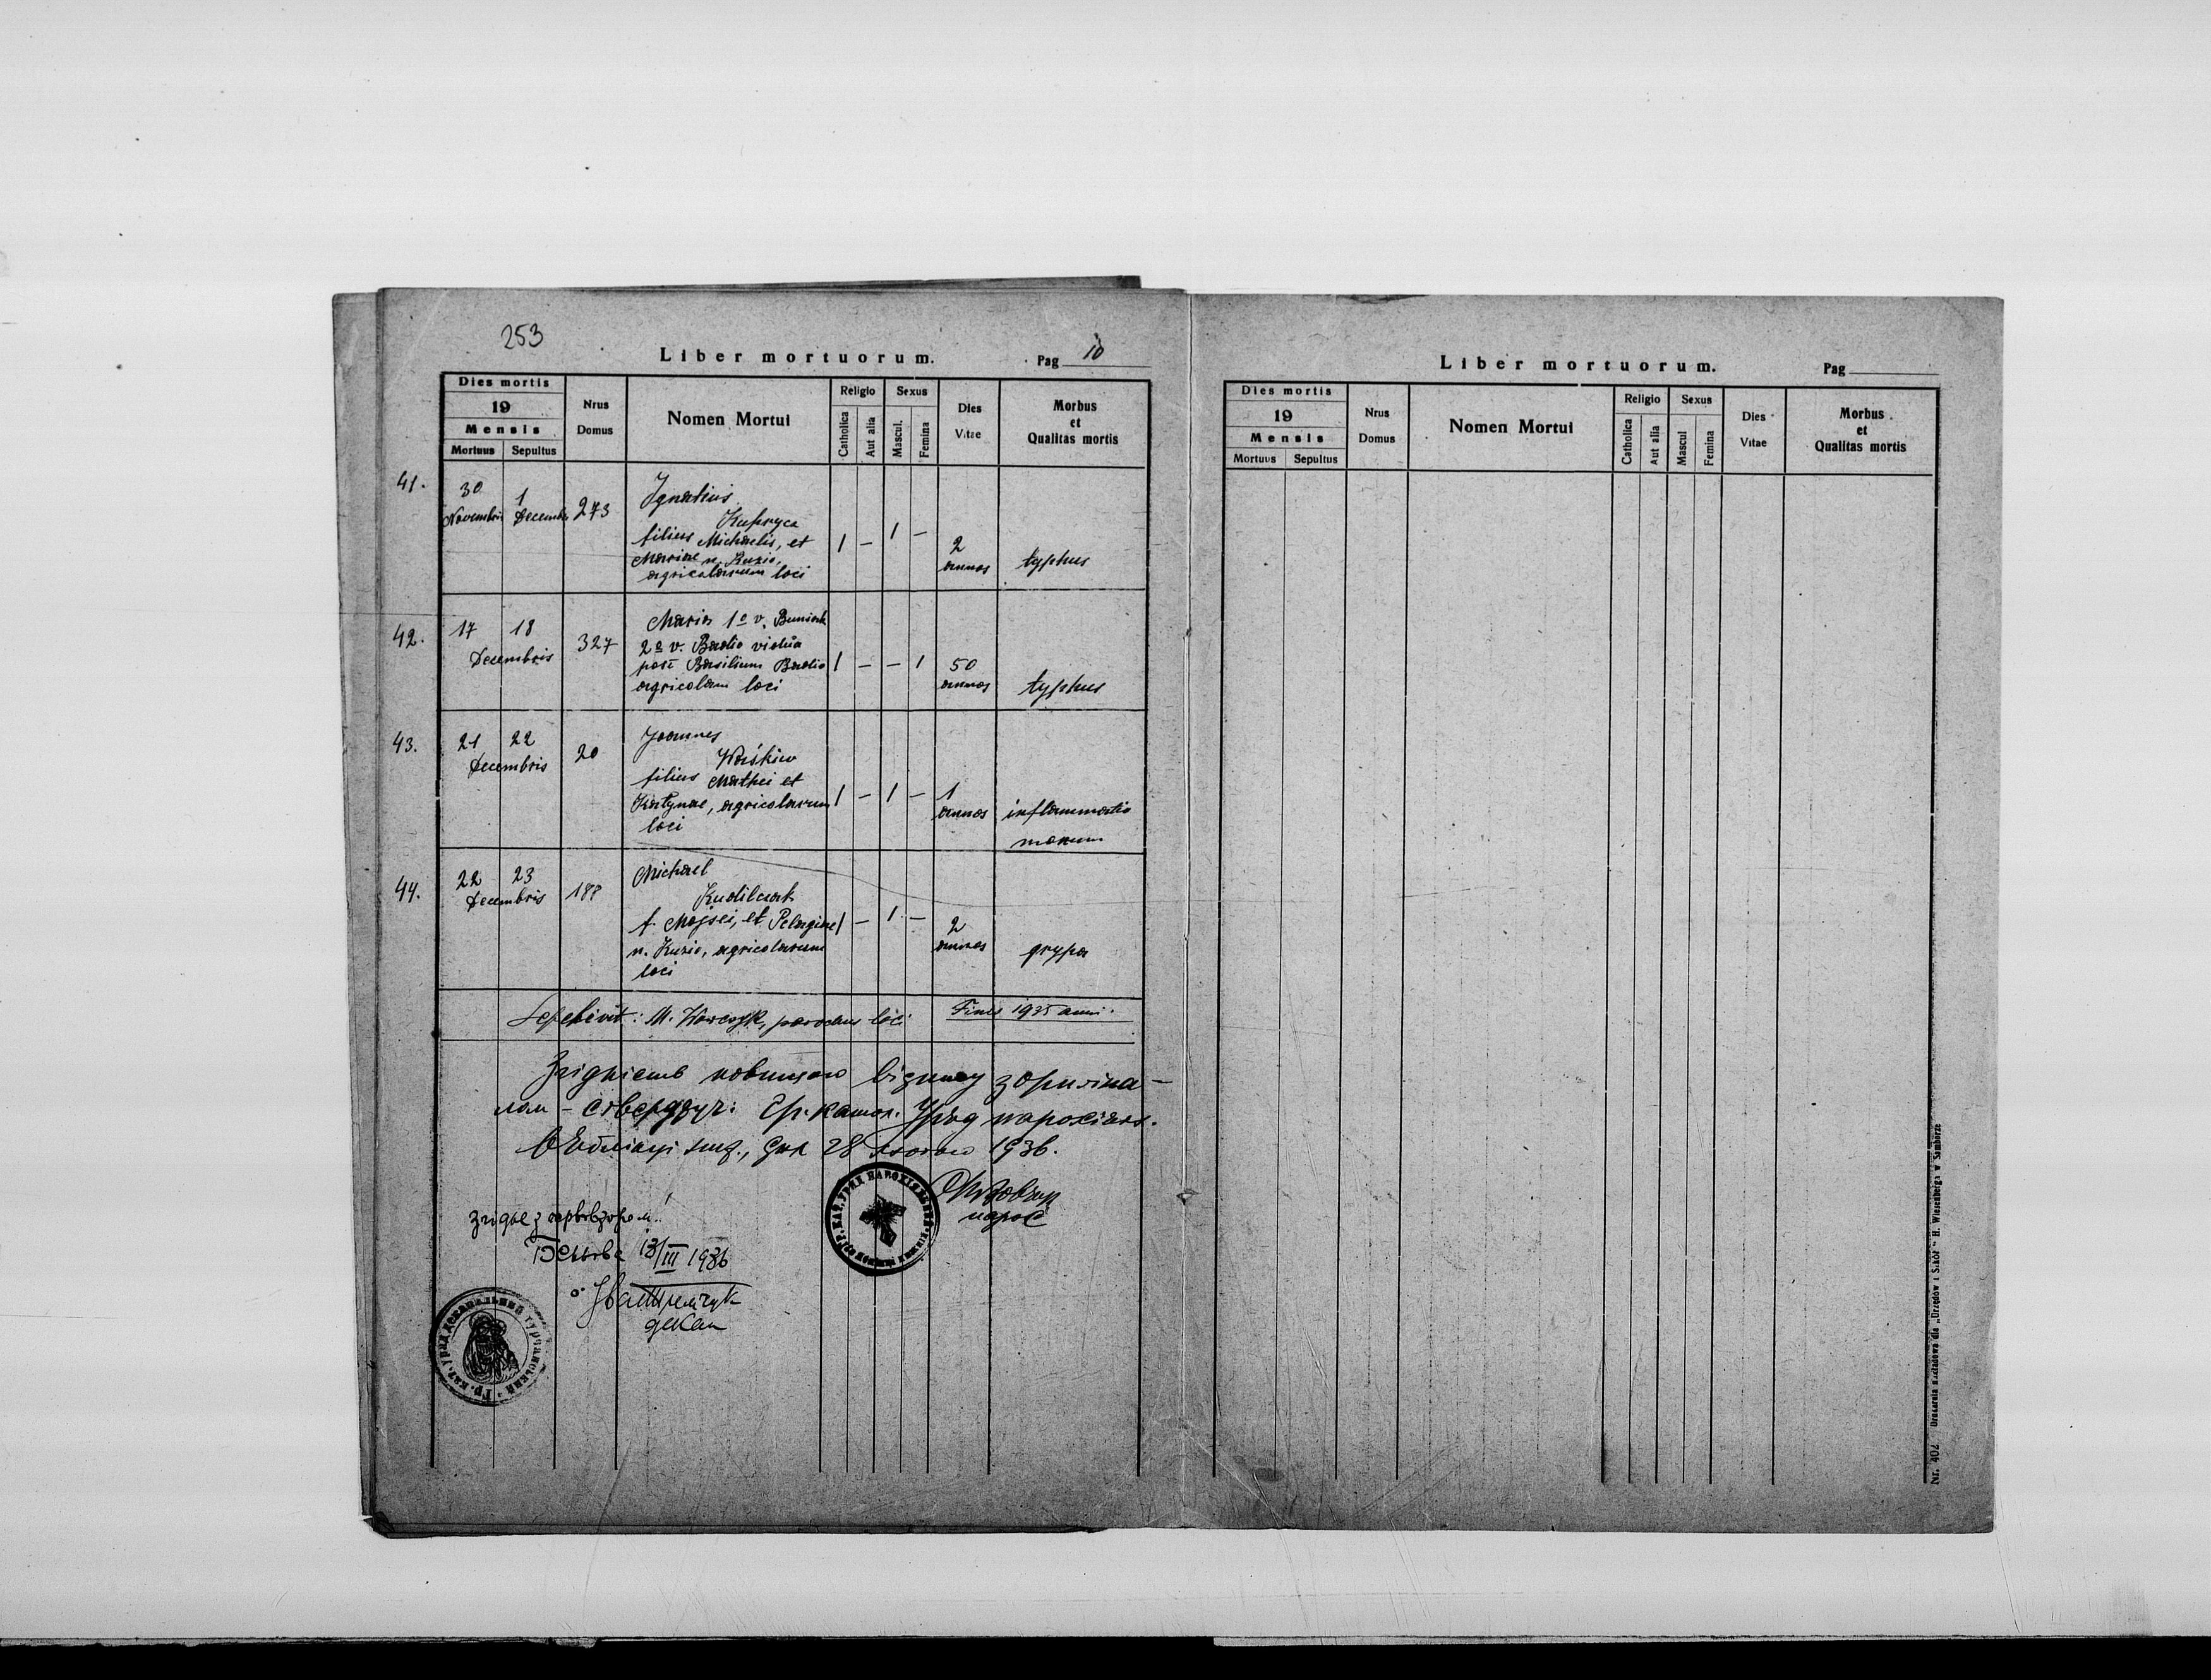 253
Liber mortuorum.
Pag 10
Dies mortis
19
Mensis
Mortuus
Sepultus
Nrus
Domus
Nomen Mortui
Religio
Catholica
Aut alia
Sexus
Mascul.
Femina
Dies
Vitae
Morbus
et
Qualitas mortis
41.
30
Novembris
1
Decembr
273
Ignatius
filius Michaelis, et
Mariae n. Kuzio,
agricolarum loci
1 – 1 –
2
annos
typhus
42.
17 18
Decembris
327
Maria 1º v. Buniak
2º v. Badio vidua
post Basilium Badio
agricolam loci
1 – – 1
50
annos
typhus
43.
21 22
Decembris
20
Joannes
Waśkiw
filius Mathei et
agricolarum
loci
1 – 1 –
1
annos
inflammatio
44.
22 23
Decembris
188
Michael
f. Mojsei, et Pelagiae
n. Kuzio, agricolarum
loci
1 – 1 –
2
annos
grypa
M. parochus loci
Finis 1935 anni.
Згідність повищого відпису з оригіна-
лом – стверджує: Гр. катол. Уряд парохіяль.
дня 28 лютого 1936.
парох
Згідне з
13/III 1936
декан
Гр. кат. Уряд деканальний турчанський
Liber mortuorum.
Pag
Dies mortis
19
Mensis
Mortuus
Sepultus
Nrus
Domus
Nomen Mortui
Religio
Catholica
Aut alia
Sexus
Mascul
Femina
Dies
Vitae
Morbus
et
Qualitas mortis
Nr. 402 Drukarnia nakładowa dla „Urzędów i Szkół" H. Wiesenberga w Samborze